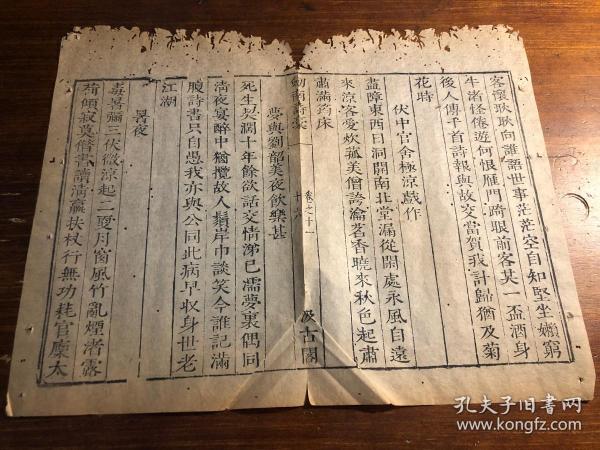 客懷耿耿向誰語世事茫茫空自知堅坐嬾窮
牛渚怪倦遊何恨雁門踦眼前客其一盃酒身
後人傳千首詩報與故交當賀我計歸猶及菊
花時
伏中官舍極涼戲作
盡障東西日洞開南北堂漏從閑處永風自遠
來涼客愛炊菰美僧誇瀹茗香曉來秋色起肅
肅滿筠床
劍南詩稾
卷之十一
十六
汲古閣
夢與劉韶美夜飲樂甚
死生契濶十年餘欲話交情涕已濡夢裏偶同
清夜宴醉中猶攬故人鬚岸巾談笑今誰記滿
腹詩書只自愚我亦與公同此病早収身世老
江湖
暑夜
毒暑彌三伏微涼起二更月窗風竹亂煙渚露
荷傾寂莫偕書請清羸扶杖行無功耗官廩太
孔夫子旧書网
www.kongfz.com